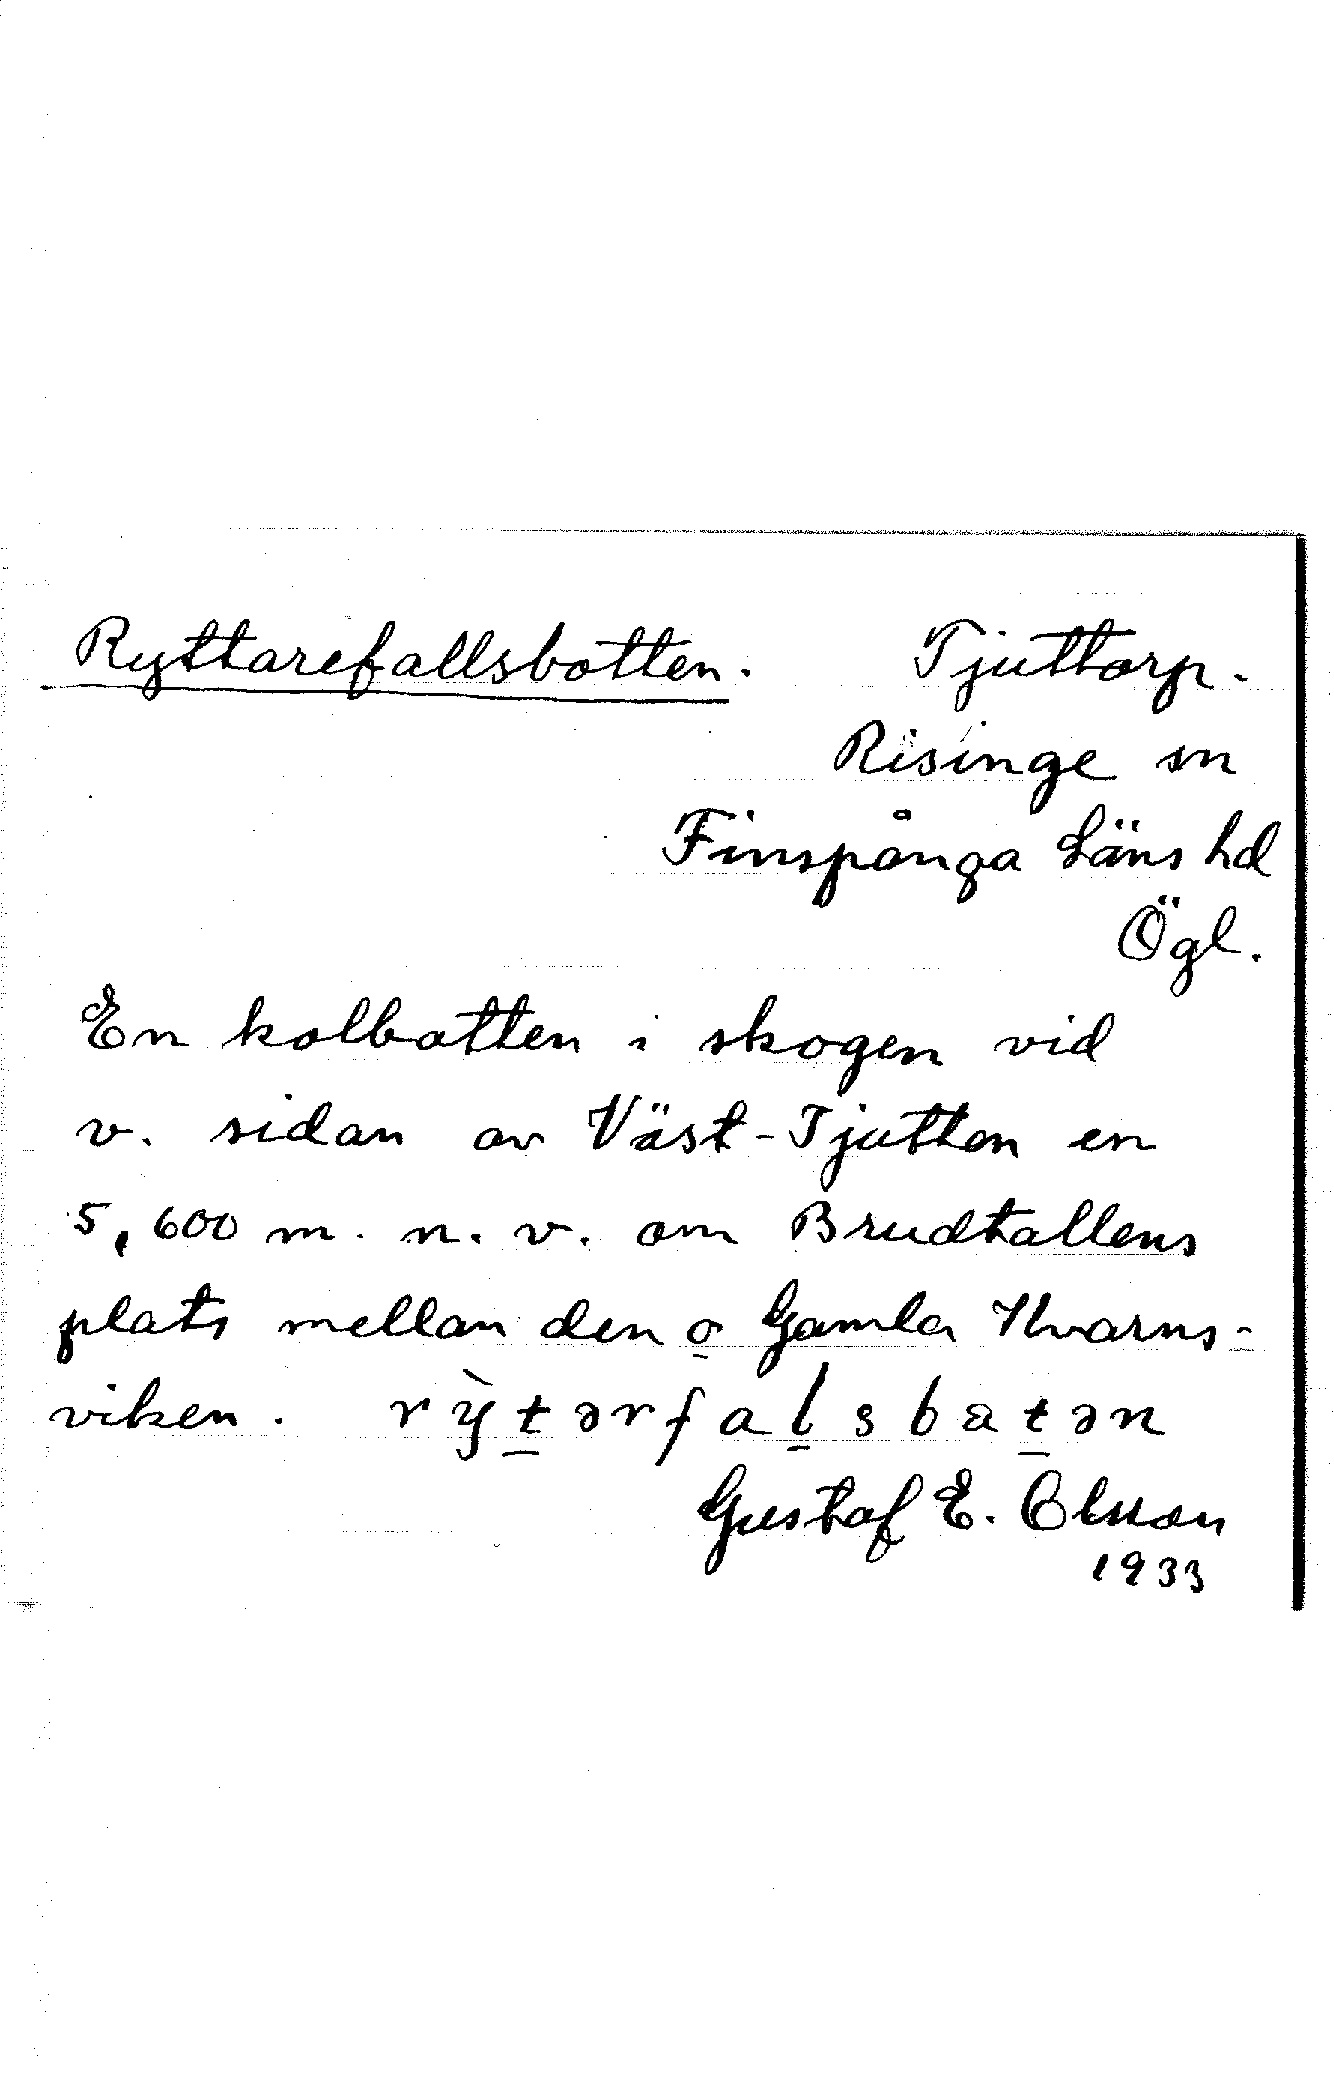 Ryttarefallsbotten. Tjuttorp.
Risinge sn
Finspånga Läns hd
Ögl.
En kolbotten i skogen vid
v. sidan av Väst-Tjutten en
5,600 m. n. v. om Brudtallens
plats mellan den o Gamla Kvarns-
viken. rỳt̲ərfal̲sbat̲ən
Gustaf E. Olsson
1933